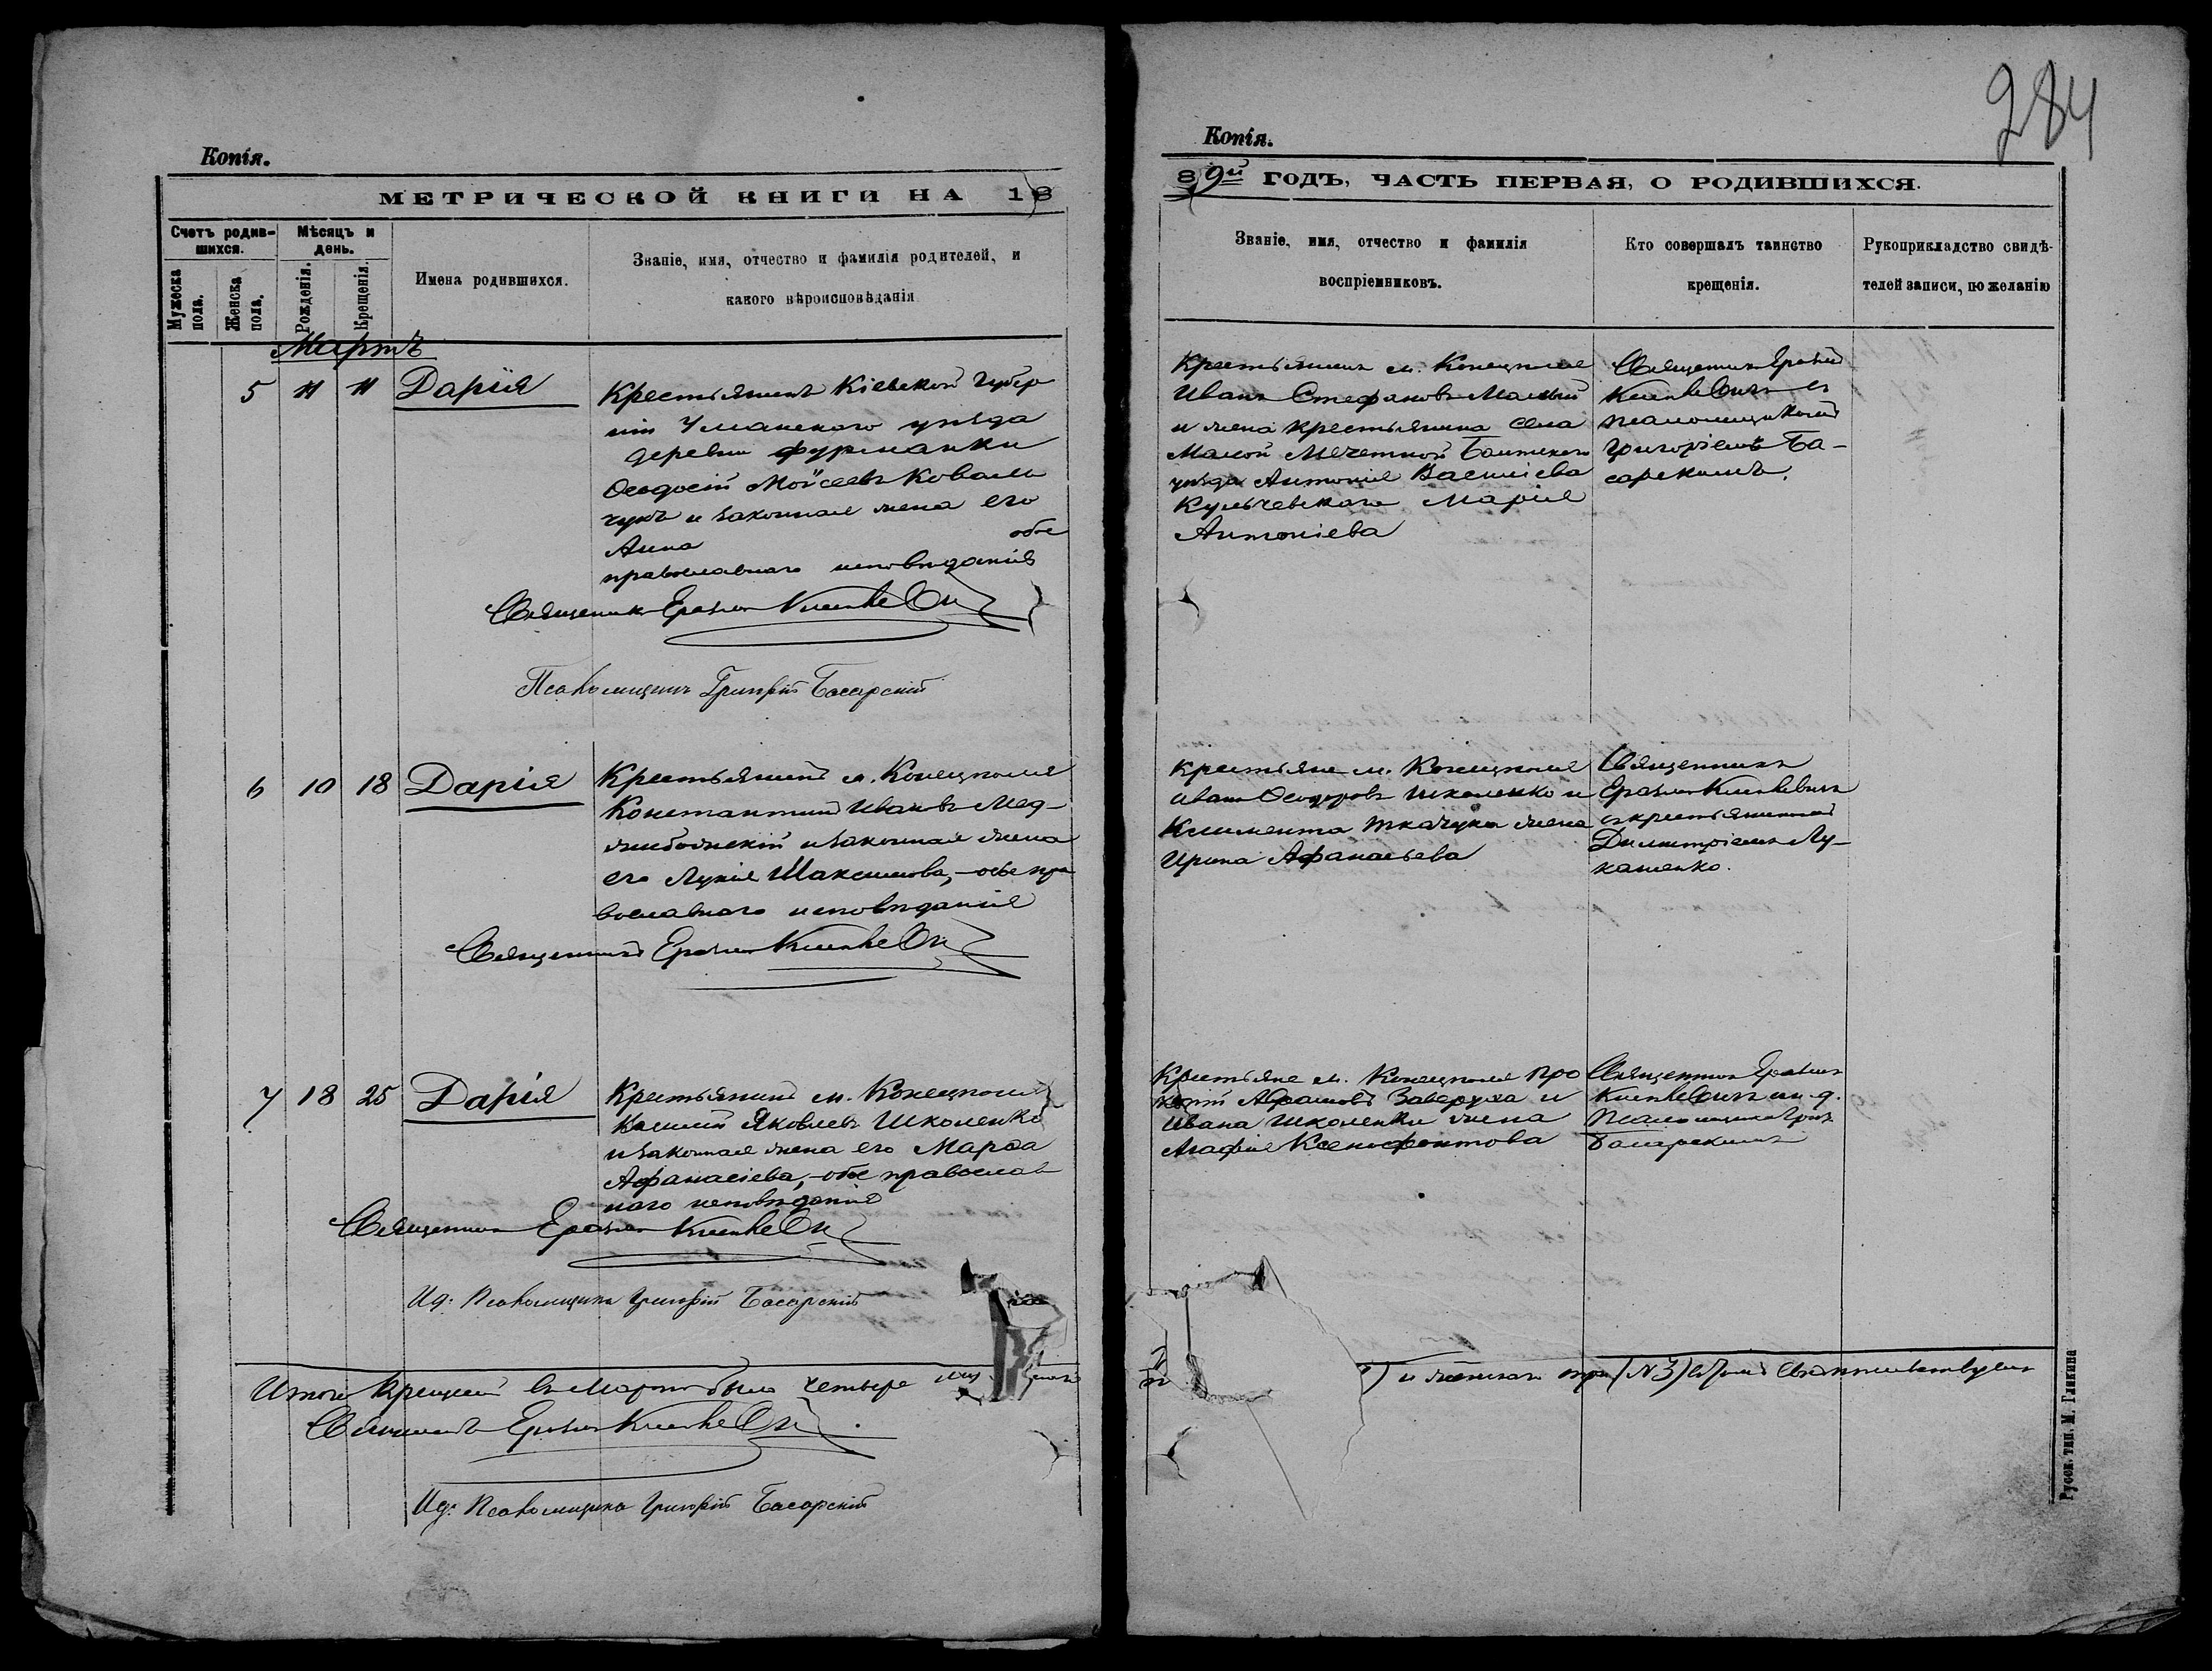 284
Копія.
МЕТРИЧЕСКОЙ КНИГИ НА 18
Счетъ родив-
шихся.
Мужеска
пола.
Женска
пола.
Мѣсяцъ и
день.
Рожденія.
Крещенія.
Имена родившихся.
Званіе, имя, отчество и фамилія родителей, и
какого вѣроисповѣданія
Мартъ
5 11 11 Дарія
Крестьянинъ Кіевской Губер
ніи Уманскаго уѣзда
деревни Фурманки
Ѳеодосій Мойсеевъ Коваль
чукъ и законная жена его
Анна обое
православнаго исповѣданія
Священникъ
Псаломщикъ Григорій Басарскій
6 10 18 Дарія
Крестьянинъ м. Конецполя
Константинъ Ивановъ Мед-
жибожскій и законная жена
его Лукія Максимова, – обе пра
вославнаго исповѣданія
Священникъ
7 18 25 Дарія
Крестьянинъ м. Конецполя
Василій Яковлевъ Школенко
и законная жена его Марѳа
Афанасіева, – обое православ
наго исповѣданія
Священникъ
Ид: Псаломщика Григорій Басарскій
Итого крещеній въ Мартѣ было четыре
Священникъ
Ид: Псаломщика Григорій Басарскій
Копія.
89й ГОДЪ, ЧАСТЬ ПЕРВАЯ, О РОДИВШИХСЯ.
Званіе, имя, отчество и фамилія
воспріемниковъ.
Кто совершалъ таинство
крещенія.
Рукоприкладство свидѣ-
телей записи, по желанію
Крестьянинъ м. Конецполя
Иванъ Стефановъ Малый
и жена крестьянина села
Малой Мечетной Балтскаго
уѣзда Антонія Василіева
Кульчевскаго Марія
Антоніева
Священникъ
съ
псаломщикомъ
Григоріемъ Ба-
сарскимъ.
Крестьяне м. Конецполя
Иванъ Ѳеодоровъ Школенко и
Климента Ткачука жена
Ирина Афанасьева
Священникъ
съ крестьяниномъ
Димитріемъ Лу-
кашенко.
Крестьяне м. Конецполя Про
копій Заверуха и
Ивана Школенки жена
Агафія Ксенофонтова
Священникъ
и. д.
Псаломщика Григ
Басарскимъ
и женскаго три (№3)
Русск. тип. М. Гликина